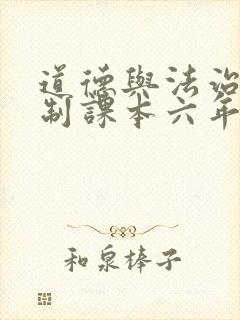 道德與法治
制課本六年
和泉棒子